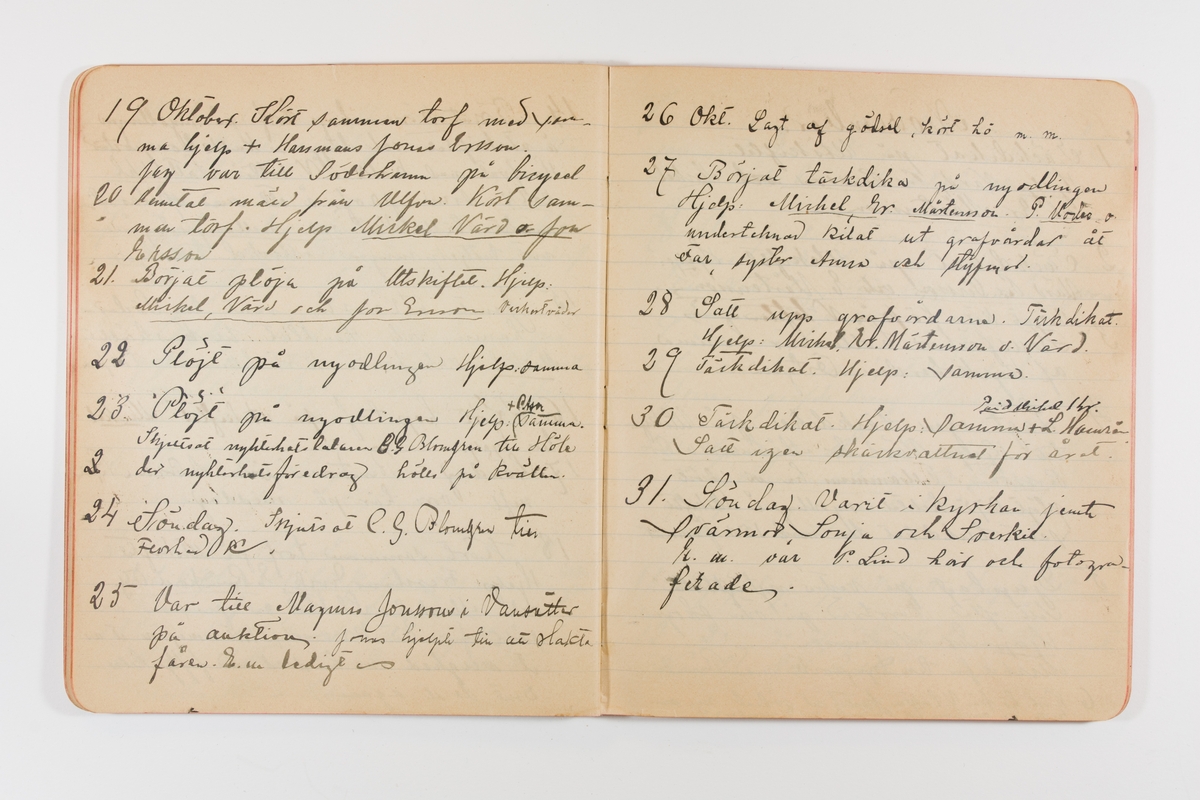 19 Oktober. Kört sammen torf med sam-
ma hjelp + Hansmans Jonas Ersson.
Jag var till Söderhamn på bicycel
20 hemtat märd från Ulfön. Kört sam-
men torf. Hjelp Mickel Värd o. Jon
Ersson
21. Börjat plöja på Utskiftet. Hjelp:
Mickel, Värd och Jon Ersson
22 Plöjt på nyodlingen Hjelp: samma
+ Peter
23. Plöjt på nyodlingen Hjelp: Samma.
Skjutsat nykterhetstalaren C. G. Blomgren till
der nykterhetsföredrag hölls på kvällen.
24 Söndag. Skjutsat C. G. Blomgren till
25 Var till Magnus Jonssons i Vansätter
på auktion. Jonas hjelpte till att slakta
fåren. E.m. ledigt
26 Okt. Lagt af gödsel, kört hö m. m.
27 Börjat täckdika på nyodlingen
Hjelp: Mickel, Er. Mårtensson. P. o
undertecknad kilat ut grafvårdar åt
Far, syster Anna och styfmor.
28 Satt upp grafvårdarne. Täckdikat.
Hjelp: Mickel, Er. Mårtensson o. Värd.
29 Täckdikat. Hjelp: Samma.
Mickel 1 kr.
30 Täckdikat. Hjelp: Samma + L.
Satt igen skärkvattnet för året.
31. Söndag. Varit i kyrkan jemte
Svärmor, Sonja och Sverker.
E. m. var P. Lind här och fotogra-
ferade.